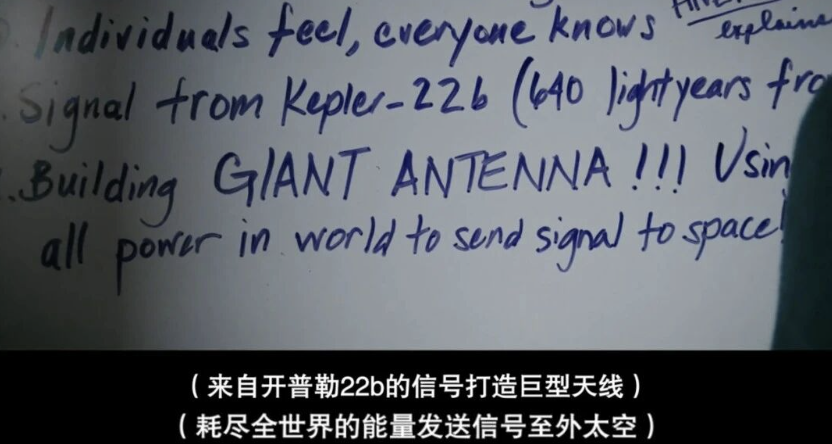 Individuals feel, everyone knows
explains
Signal from Kepler-22b (640 lightyears fro
Building GIANT ANTENNA!!! Usin
all power in world to send signal to space!
（来自开普勒22b的信号打造巨型天线）
（耗尽全世界的能量发送信号至外太空）